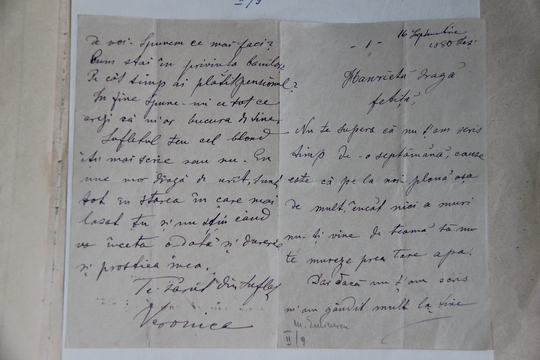 II/9
- 1 -
16 Septembrie
1880 Iași
Hanrieta dragă
fetiță
Nu te supera că nu ț-am scris
timp de-o septămână, causa
este că pe la noi plouă așa
de mult, încât nici a muri
nu-ți vine de teamă să nu
te mureze prea tare apa.
Dar dacă nu ț-am scris
m'am gândit mult la tine
II/9
de voi. Spunem ce mai faci?
Cum stai în privința banilor?
Pe cât timp ai plătit pensionul?
In fine spune-mi ce tot ce
crezi că m'or bucura de tine.
Sufletul teu cel blond
iți mai scrie sau nu. Eu
mor dragă de urât, sunt
tot în starea în care m'ai
lasat tu și nu știu când
va înceta odată și durerea
și prostiea mea.
Te sărut din suflet
Veronica